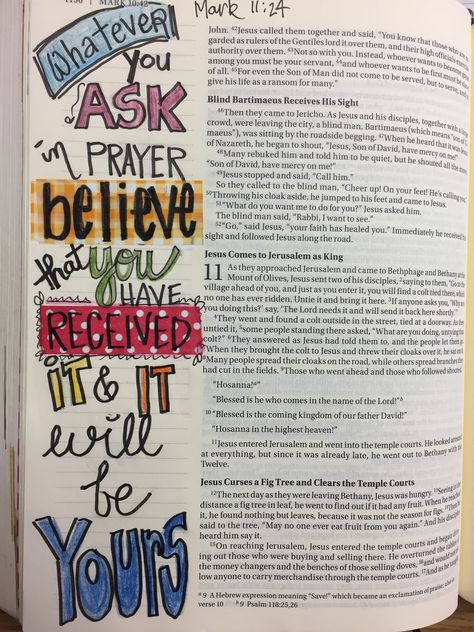 1156 | MARK 10:42
Mark 11:24
Whatever
you
ASK
in PRAYER
believe
that you
HAVE
RECEIVED
IT & IT
will
be
YOURS
John. 42Jesus called them together and said, "You know that those who
garded as rulers of the Gentiles lord it over them, and their high officials
authority over them. 43Not so with you. Instead, whoever wants to become
among you must be your servant, 44and whoever wants to be first must be
of all. 45For even the Son of Man did not come to be served, but to serve, and
give his life as a ransom for many."
Blind Bartimaeus Receives His Sight
46Then they came to Jericho. As Jesus and his disciples, together with a
crowd, were leaving the city, a blind man, Bartimaeus (which means "son of
maeus"), was sitting by the roadside begging. 47When he heard that it was
of Nazareth, he began to shout, "Jesus, Son of David, have mercy on me!"
48Many rebuked him and told him to be quiet, but he shouted all the more
"Son of David, have mercy on me!"
49Jesus stopped and said, "Call him."
So they called to the blind man, "Cheer up! On your feet! He's calling you."
50Throwing his cloak aside, he jumped to his feet and came to Jesus.
51"What do you want me to do for you?" Jesus asked him.
The blind man said, "Rabbi, I want to see."
52"Go," said Jesus, "your faith has healed you." Immediately he received his
sight and followed Jesus along the road.
Jesus Comes to Jerusalem as King
11 As they approached Jerusalem and came to Bethphage and Bethany at the
Mount of Olives, Jesus sent two of his disciples, 2saying to them, "Go to the
village ahead of you, and just as you enter it, you will find a colt tied there, which
no one has ever ridden. Untie it and bring it here. 3If anyone asks you, 'Why are
you doing this?' say, 'The Lord needs it and will send it back here shortly.'"
4They went and found a colt outside in the street, tied at a doorway. As they
untied it, 5some people standing there asked, "What are you doing, untying that
colt?" 6They answered as Jesus had told them to, and the people let them go.
7When they brought the colt to Jesus and threw their cloaks over it, he sat on it.
8Many people spread their cloaks on the road, while others spread branches they
had cut in the fields. 9Those who went ahead and those who followed shouted,
"Hosanna!a"
"Blessed is he who comes in the name of the Lord!"b
10"Blessed is the coming kingdom of our father David!"
"Hosanna in the highest heaven!"
11Jesus entered Jerusalem and went into the temple courts. He looked around
at everything, but since it was already late, he went out to Bethany with the
Twelve.
Jesus Curses a Fig Tree and Clears the Temple Courts
12The next day as they were leaving Bethany, Jesus was hungry. 13Seeing in the
distance a fig tree in leaf, he went to find out if it had any fruit. When he reached
it, he found nothing but leaves, because it was not the season for figs. 14Then he
said to the tree, "May no one ever eat fruit from you again." And his disciples
heard him say it.
15On reaching Jerusalem, Jesus entered the temple courts and began driv-
ing out those who were buying and selling there. He overturned the tables of
the money changers and the benches of those selling doves, 16and would not
allow anyone to carry merchandise through the temple courts. 17And as he
a 9 A Hebrew expression meaning "Save!" which became an exclamation of praise; also in
verse 10 b 9 Psalm 118:25,26